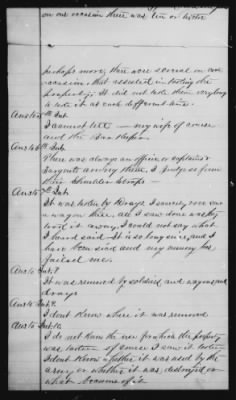 on one occasion there was ten or twelve
perhaps more, there were several on one
occasion, that assisted in taking the
property; It did not take them very long
to take it at each different time.
Ans to 5th Int.
I cannot tell — my wife of course
and the
Ans to 6th Int.
There was always an officer, or captains &
Sargents among them, I judge so from
their Shoulder Straps —
Ans to 7th Int.
It was taken by Drays I merely one
a wagon there, all I saw done was they
took it away, I could not say what
I heard said. It is so long since, and I
have been sick and my memory has
failed me.
Ans to Int. 8
It was removed by soldiers and wagons and
drays
Ans to Int. 9.
I dont know where it was removed
Ans to Int. 10.
I do not know the use for which the property
was taken of course I saw it taken
I dont know whether it was used by the
army or whether it was destroyed or
what became of it